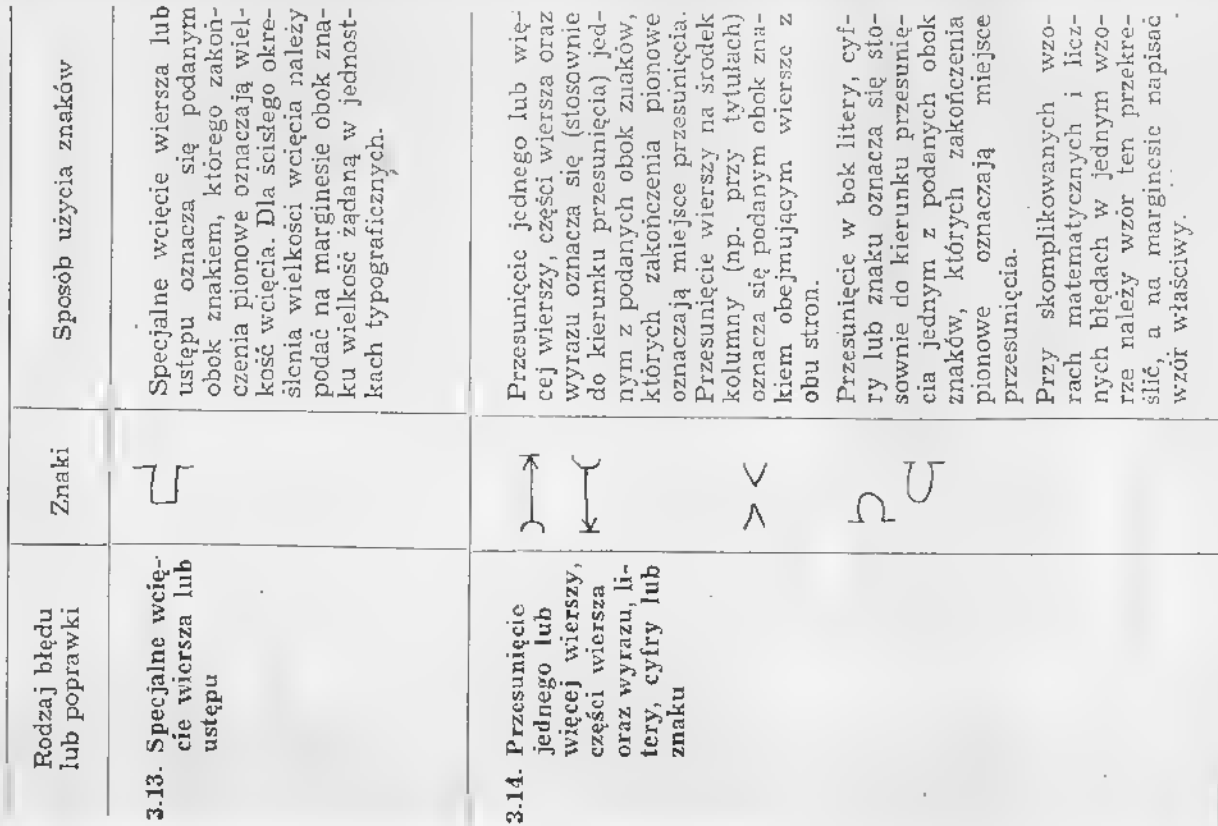 Rodzaj błędu
lub poprawki
Znaki
Sposób użycia znaków
3.13. Specjalne wcię-
cie wiersza lub
ustępu
Specjalne wcięcie wiersza lub
ustępu oznacza się podanym
obok znakiem, którego zakoń-
czenia pionowe oznaczają wiel-
kość wcięcia. Dla ścisłego okre-
ślenia wielkości wcięcia należy
podać na marginesie obok zna-
ku wielkość żądaną w jednost-
kach typograficznych.
3.14. Przesunięcie
jednego lub
więcej wierszy,
części wiersza
oraz wyrazu, li-
tery, cyfry lub
znaku
Przesunięcie jednego lub wię-
cej wierszy, części wiersza oraz
wyrazu oznacza się (stosownie
do kierunku przesunięcia) jed-
nym z podanych obok znaków,
których zakończenia pionowe
oznaczają miejsce przesunięcia.
Przesunięcie wierszy na środek
kolumny (np. przy tytułach)
oznacza się podanym obok zna-
kiem obejmującym wiersze z
obu stron.
Przesunięcie w bok litery, cyf-
ry lub znaku oznacza się sto-
sownie do kierunku przesunię-
cia jednym z podanych obok
znaków, których zakończenia
pionowe oznaczają miejsce
przesunięcia.
Przy skomplikowanych wzo-
rach matematycznych i licz-
nych błędach w jednym wzo-
rze należy wzór ten przekre-
ślić, a na marginesie napisać
wzór właściwy.